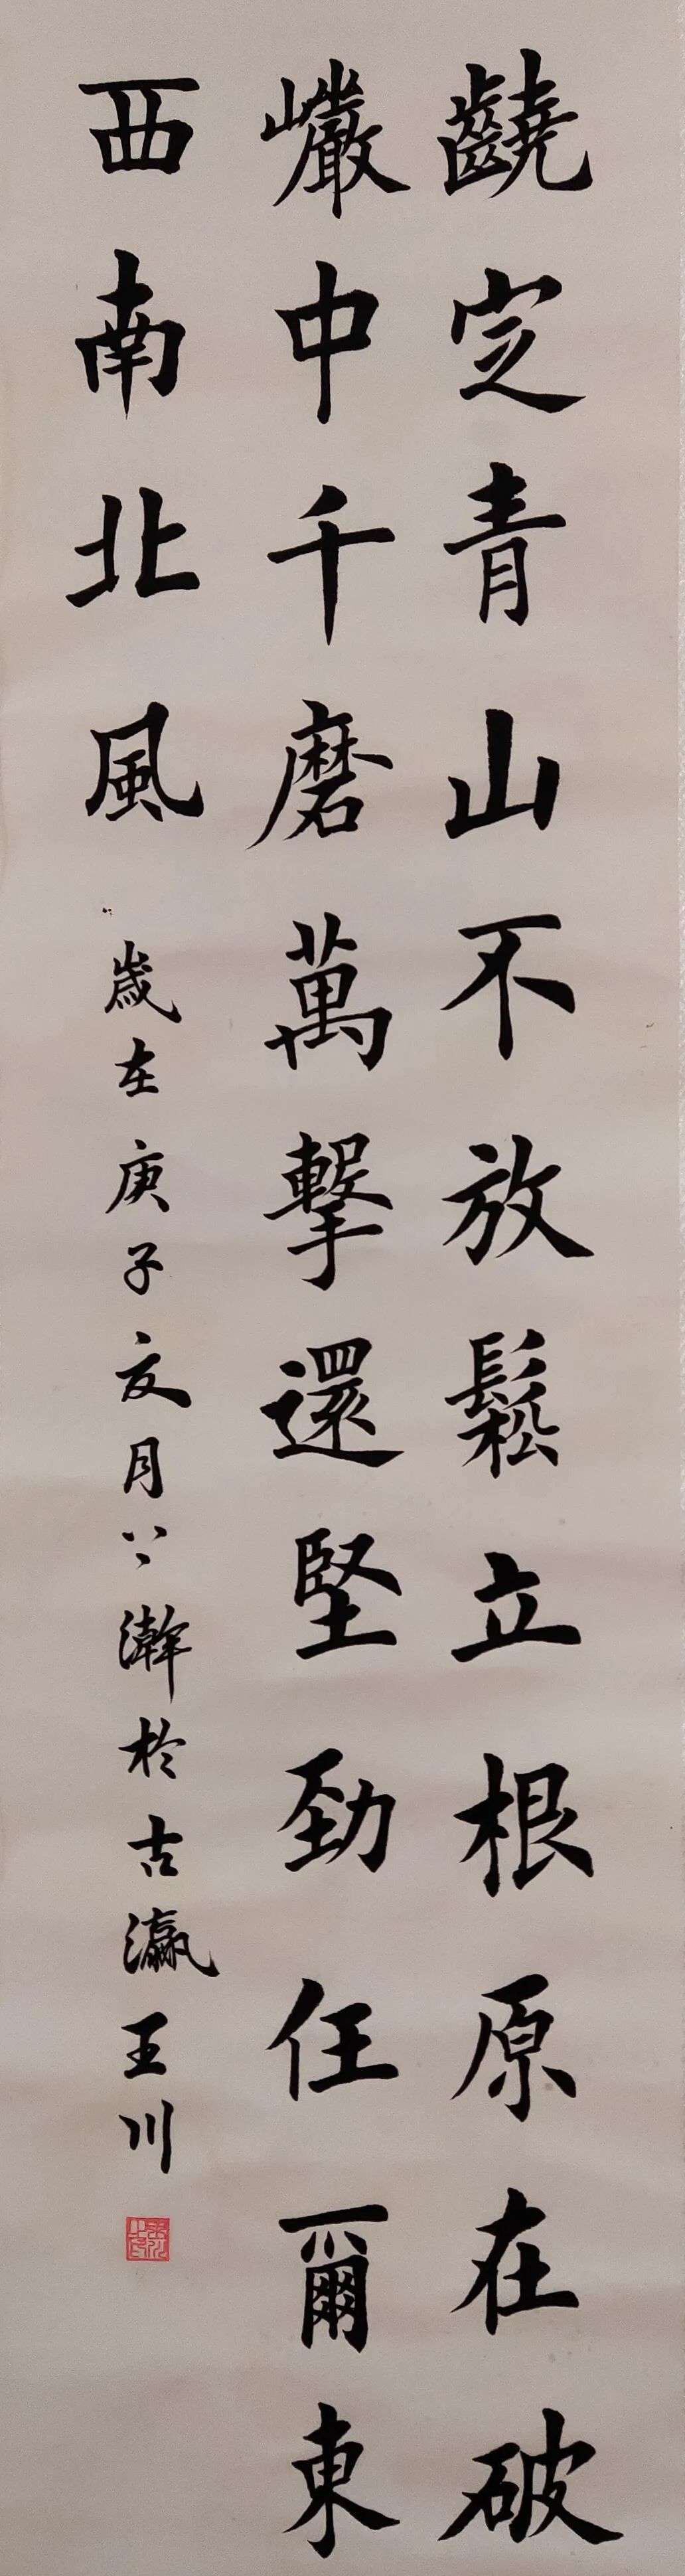 齾定青山不放鬆立根原在破
巗中千磨萬擊還堅勁任爾東
西南北風
歲在庚子夏月丷瀚於古瀛王川